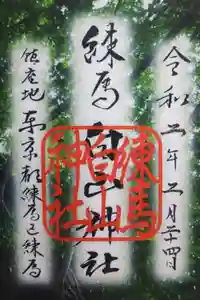 令和二年二月二十四日
練馬白山神社
鎮座地 東京都練馬区練馬
練馬
白山
神社